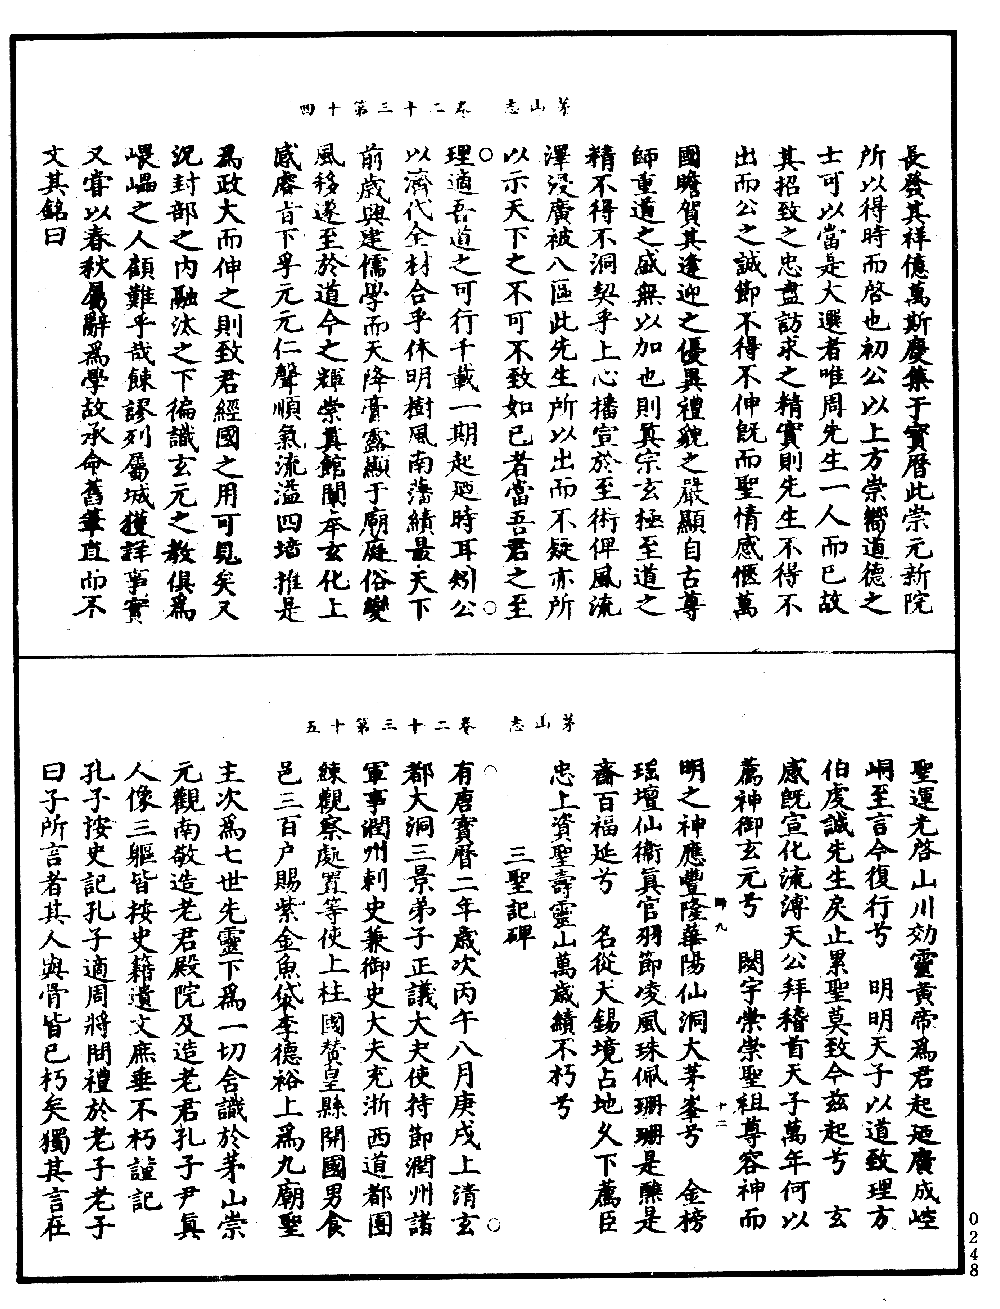 茅山志　卷二十三第十四
長發其祥億萬斯慶集于寶曆此崇元新院
所以得時而啓也初公以上方崇嚮道德之
士可以當是大選者唯周先生一人而已故
其招致之忠盡訪求之精實則先生不得不
出而公之誠節不得不伸旣而聖情感愜萬
國瞻賀其逢迎之優異禮貌之嚴顯自古尊
師重道之盛無以加也則真宗玄極至道之
精不得不洞契乎上心播宣於至術俾風流
澤浸廣被八區此先生所以出而不疑亦所
以示天下之不可不致如已者當吾君之至
理適吾道之可行千載一期起廼時耳矧公
以濟代全材合乎休明樹風南藩績最天下
前歲興建儒學而天降膏露顯于廟庭俗變
風移遂至於道今之輝崇真館闡奉玄化上
感睿旨下孚元元仁聲順氣流溢四墻推是
爲政大而伸之則致君經國之用可見矣又
況封部之內融汰之下徧識玄元之教俱爲
崐嵓之人顧難乎哉餗謬列屬城獲詳事實
又嘗以春秋屬辭爲學故承命舊筆直而不
文其銘曰
茅山志　卷二十三第十五
聖運光啓山川効靈黃帝爲君起廼廣成崆
峒至言今復行兮　明明天子以道致理方
伯虔誠先生戾止累聖莫致今茲起兮　玄
感旣宣化流溥天公拜稽首天子萬年何以
薦神御玄元兮　閟宇崇崇聖祖尊容神而
明之神應豐隆華陽仙洞大茅峯兮　金榜
瑶壇仙衛真官羽節凌風珠佩珊珊是醮是
齋百福延兮　名從天錫境占地久下薦臣
忠上資聖壽靈山萬歲績不朽兮
三聖記碑
有唐寶曆二年歲次丙午八月庚戌上清玄
都大洞三景弟子正議大夫使持節潤州諸
軍事潤州刺史兼御史大夫充浙西道都團
練觀察處置等使上柱國贊皇縣開國男食
邑三百户賜紫金魚袋李德裕上爲九廟聖
主次爲七世先靈下爲一切含識於茅山崇
元觀南敬造老君殿院及造老君孔子尹真
人像三軀皆按史籍遺文庶垂不朽謹記
孔子按史記孔子適周將問禮於老子老子
曰子所言者其人與骨皆已朽矣獨其言在
十二
0248